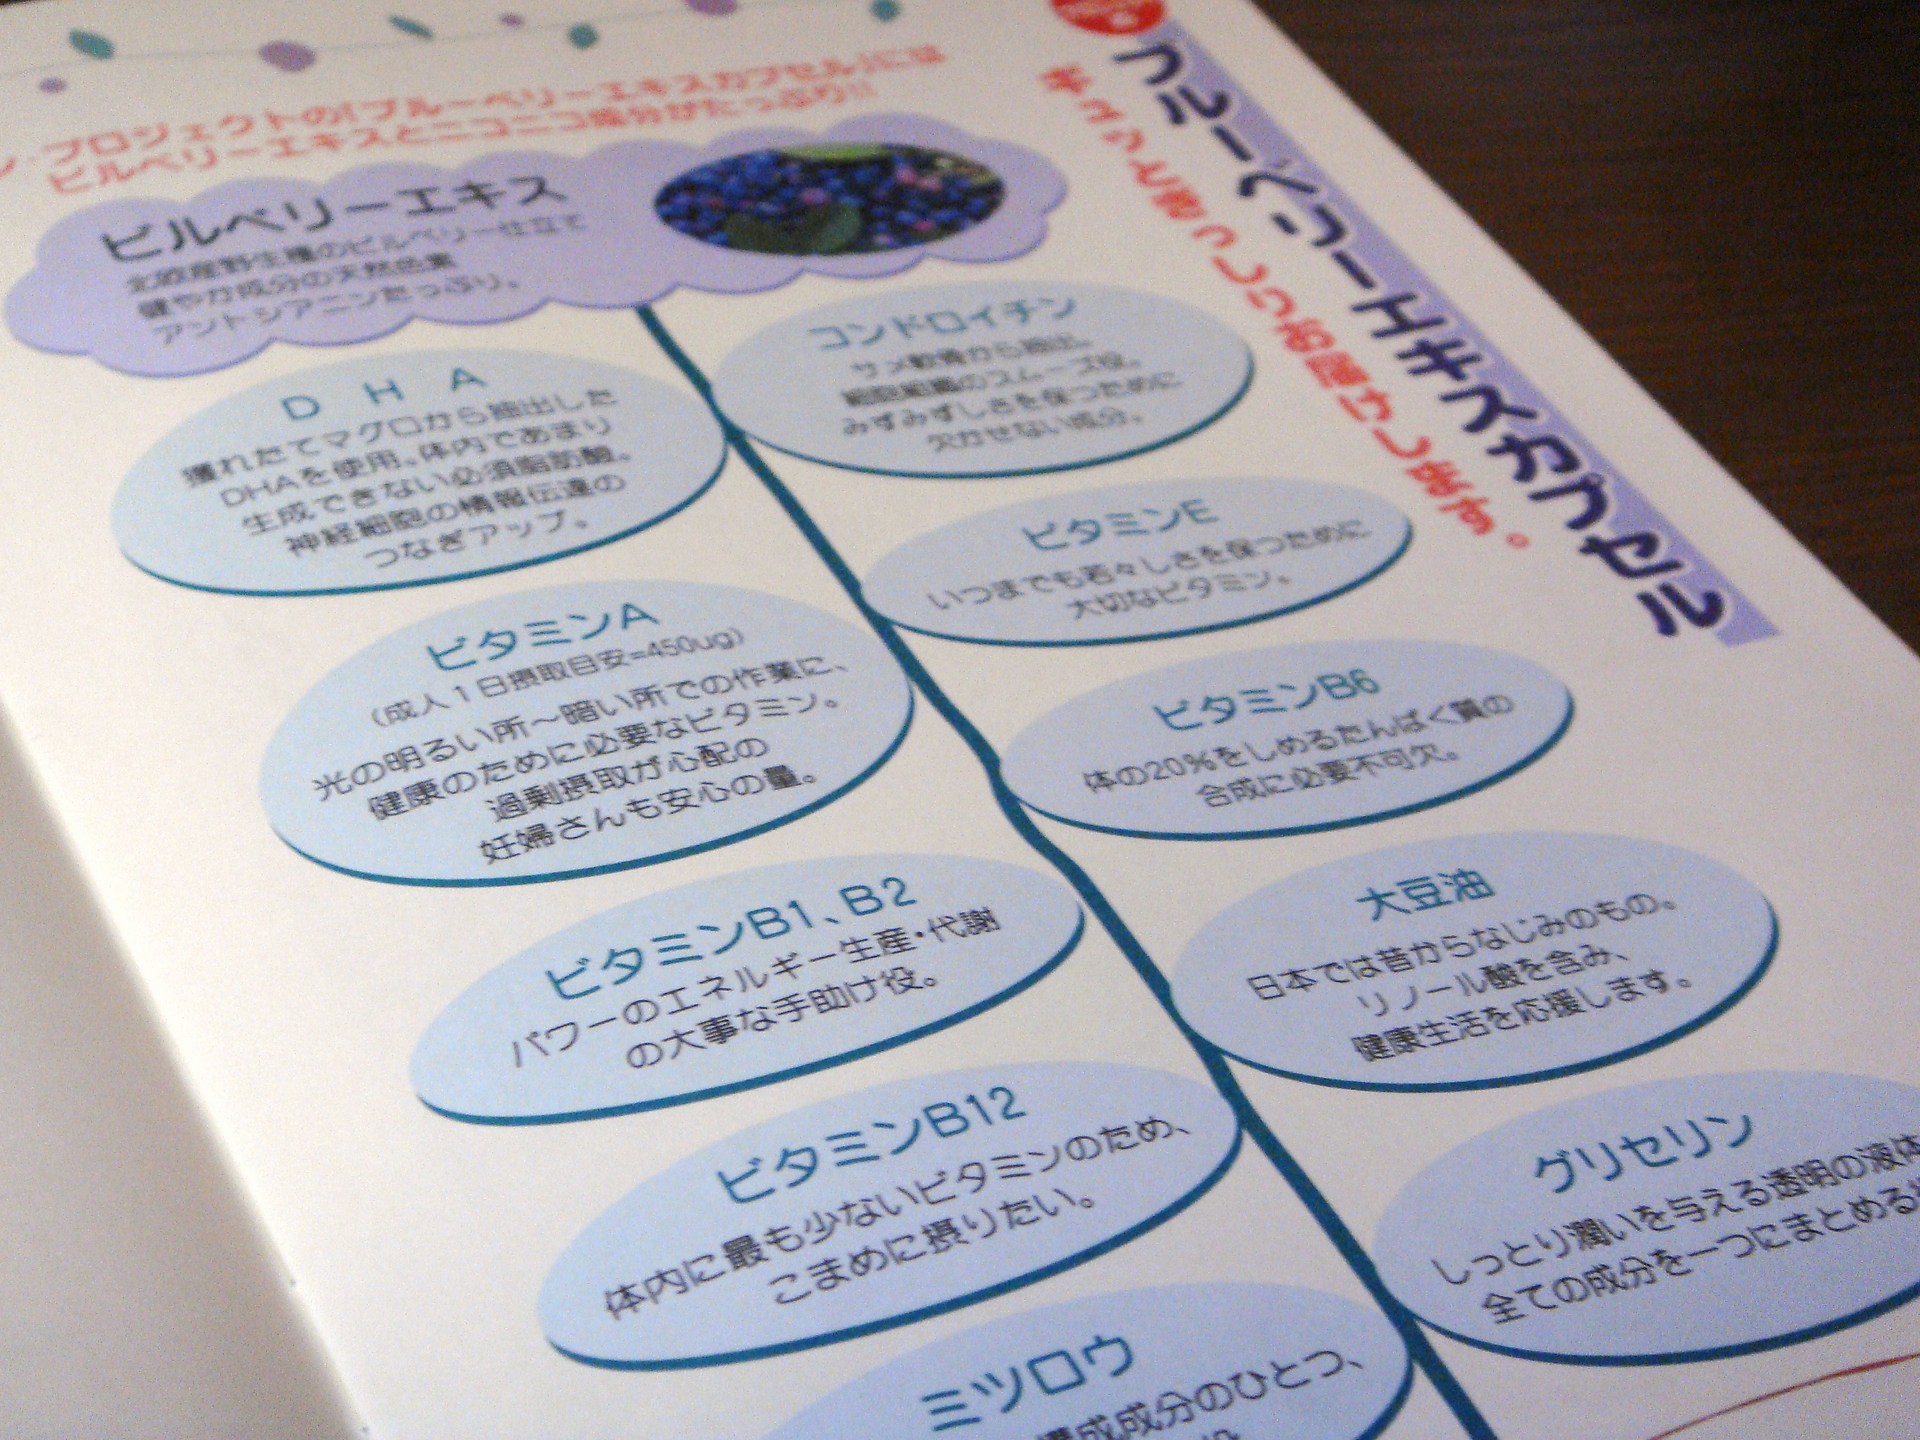 ブルーベリーエキスカプセル
ギュッと詰めてお届けします。
プロジェクトの「ブルーベリーエキスカプセル」には
ビルベリーエキスとニコニコ成分がたっぷり!!
ビルベリーエキス
北欧産野生種のビルベリー仕立て
健やか成分の天然色素
アントシアニンたっぷり。
DHA
獲れたてマグロから抽出した
DHAを使用。体内であまり
生成できない必須脂肪酸。
神経細胞の情報伝達の
つなぎアップ。
コンドロイチン
サメ軟骨から抽出。
細胞組織のスムーズ役。
みずみずしさを保つために
欠かせない成分。
ビタミンE
いつまでも若々しさを保つために
大切なビタミン。
ビタミンA
(成人1日摂取目安=450ug)
光の明るい所～暗い所での作業に、
健康のために必要なビタミン。
過剰摂取が心配の
妊婦さんも安心の量。
ビタミンB6
体の20%をしめるたんぱく質の
合成に必要不可欠。
ビタミンB1、B2
パワーのエネルギー生産・代謝
の大事な手助け役。
大豆油
日本では昔からなじみのもの。
リノール酸を含み、
健康生活を応援します。
ビタミンB12
体内に最も少ないビタミンのため、
こまめに摂りたい。
グリセリン
しっとり潤いを与える透明の液体
全ての成分を一つにまとめる
ミツロウ
構成成分のひとつ、
役